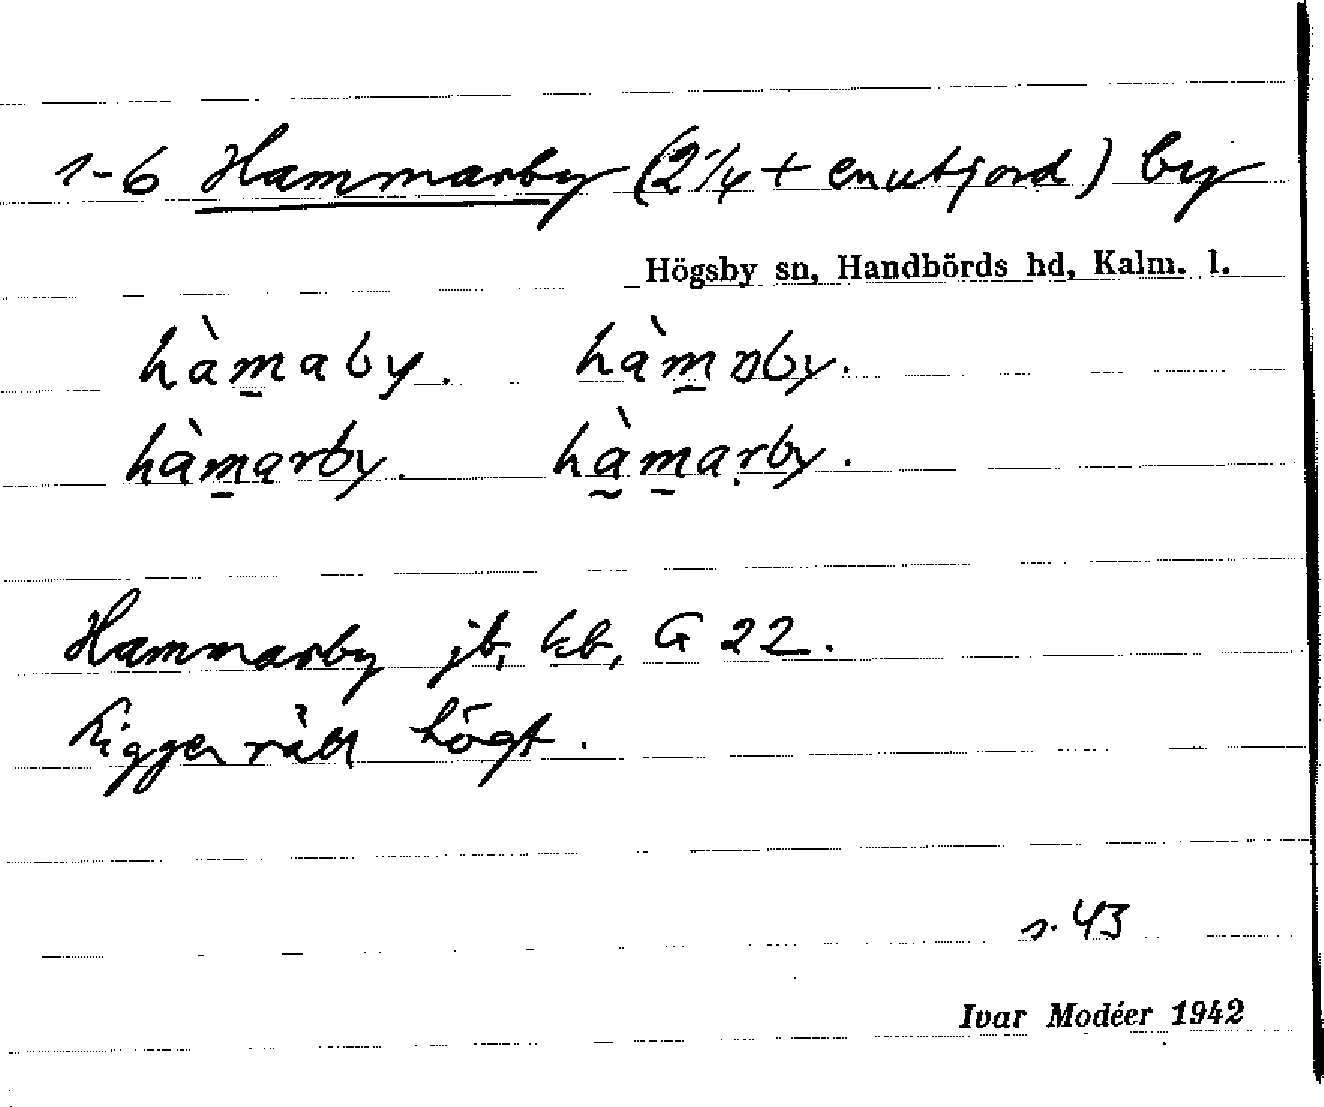 1-6 Hammarby (2 1/4 + en utjord) by
Högsby sn, Handbörds hd, Kalm. l.
hàm̱aby. hàm̱ɒby.
hàm̱arby. hà̰m̱aṛby.
Hammarby jb, kb, G 22.
Ligger rätt högt.
s. 43
Ivar Modéer 1942